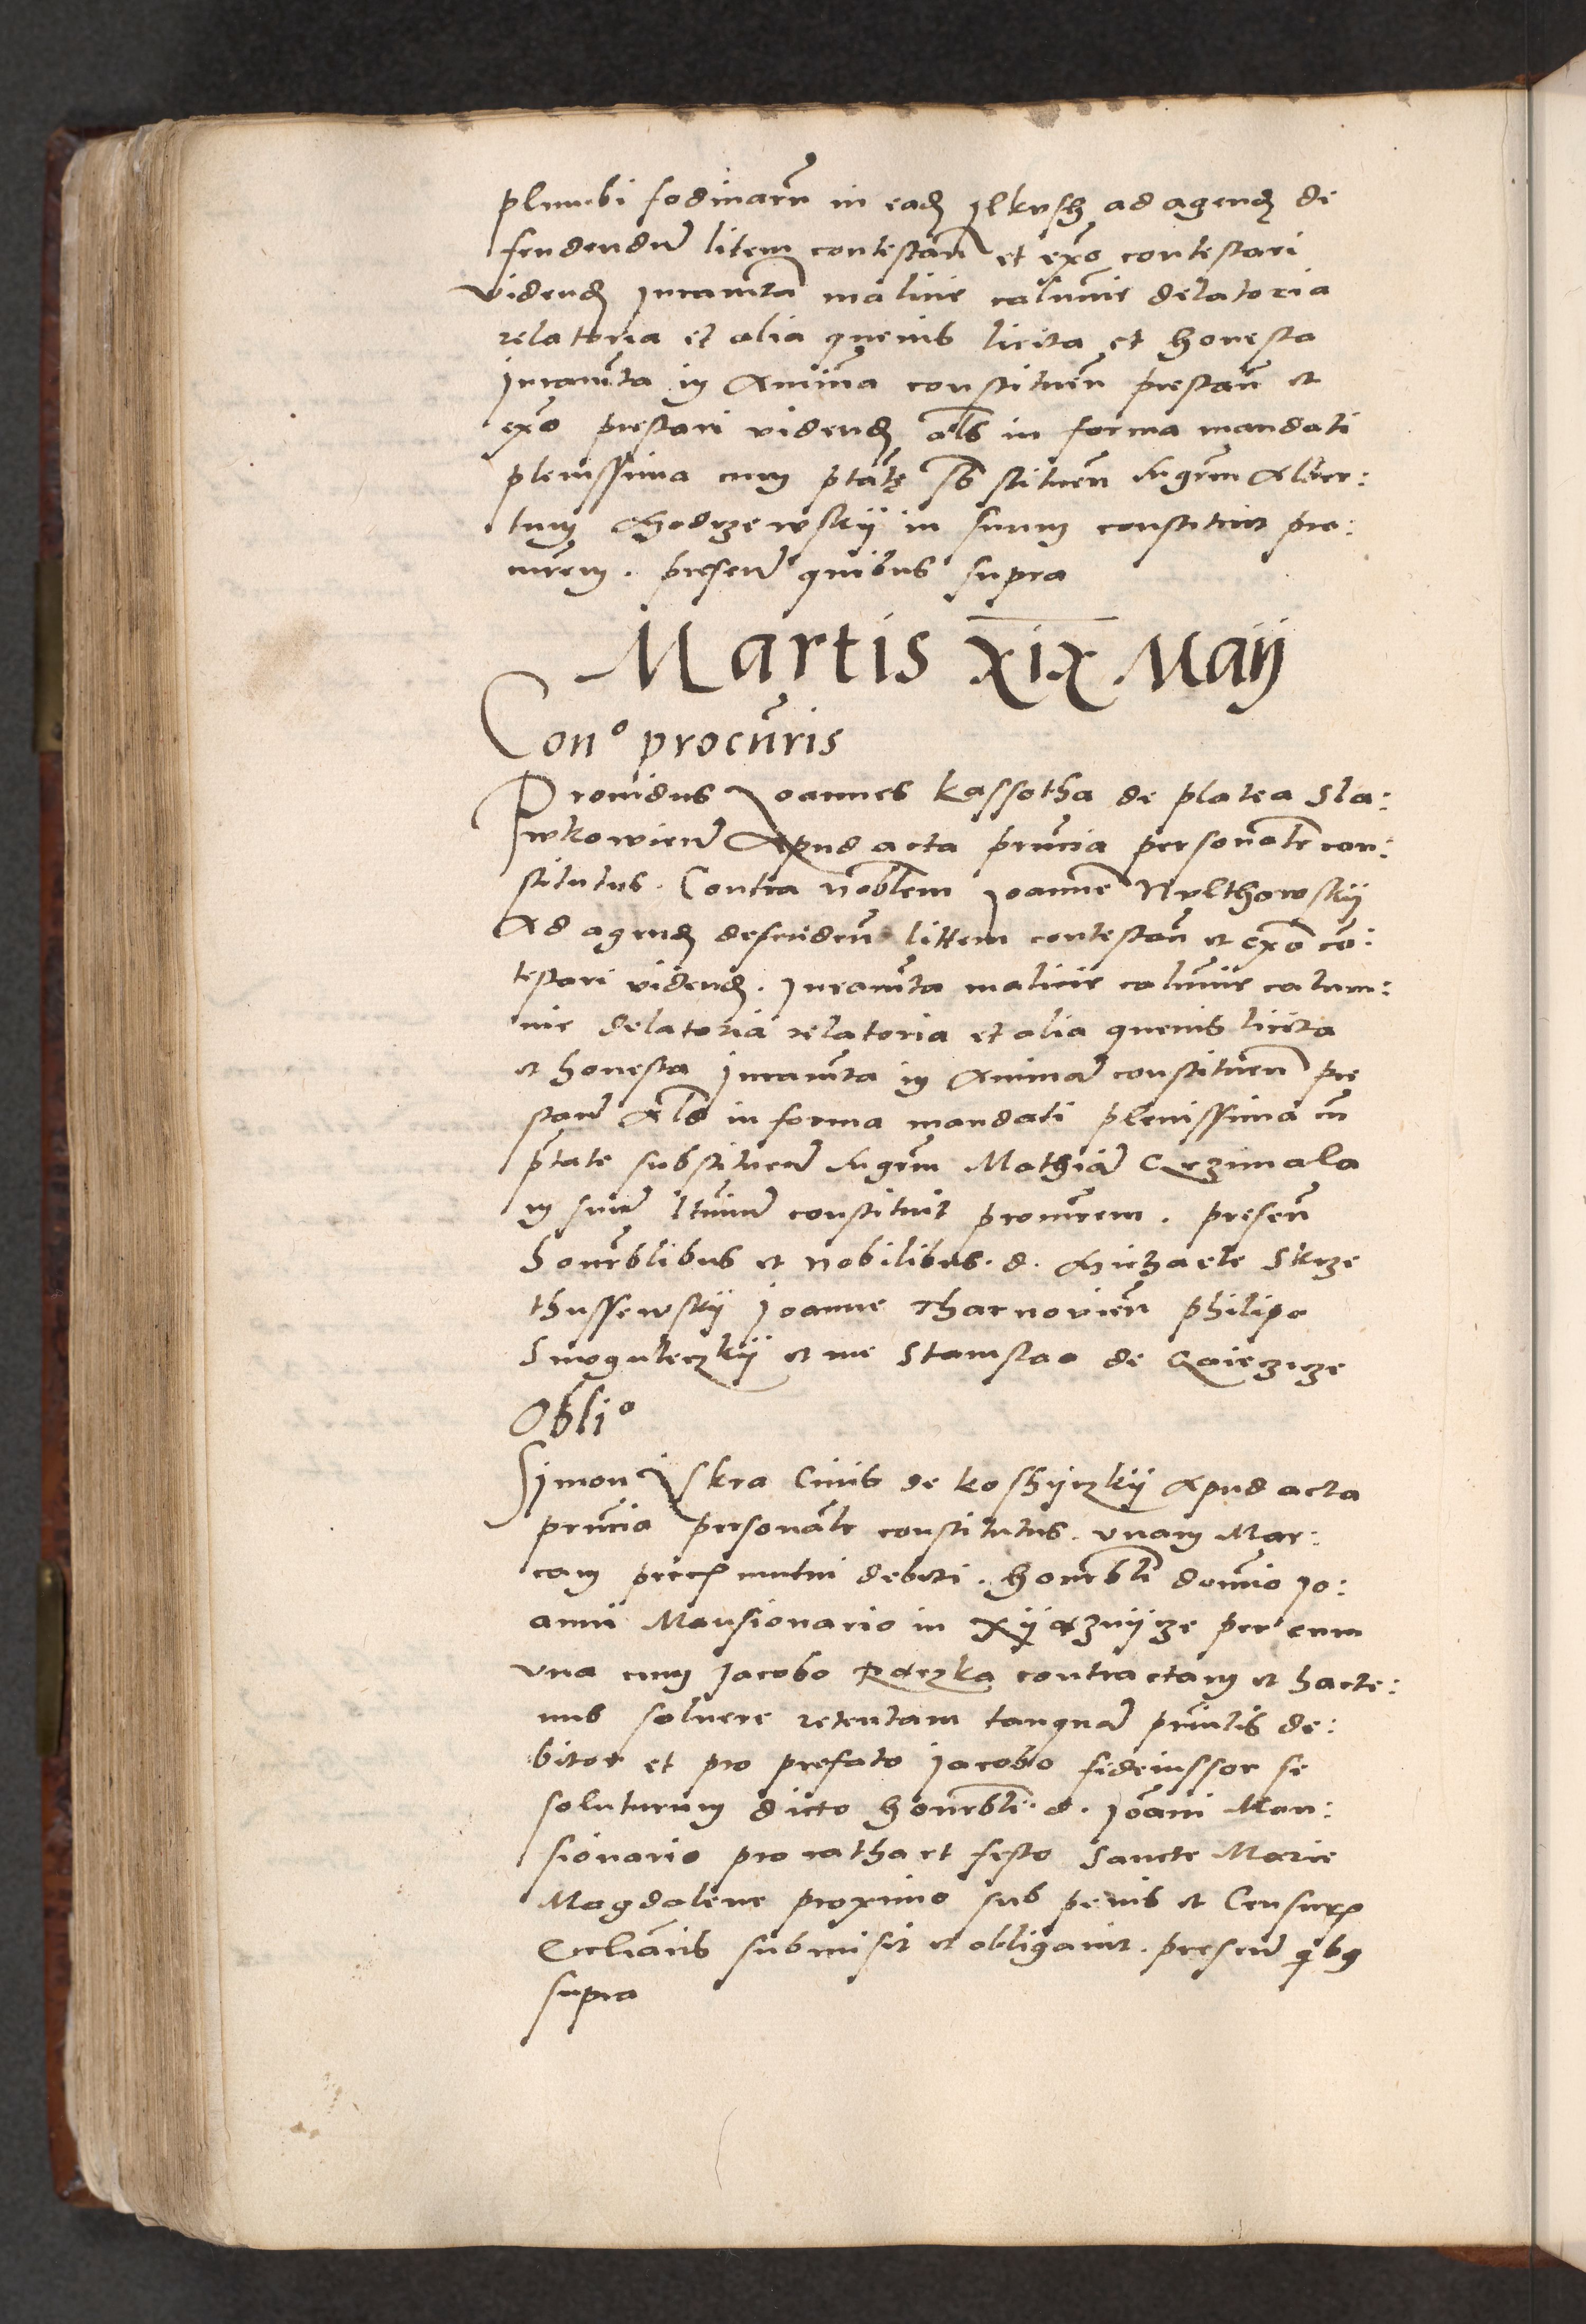 plumbi fodinaru in ead Jlkusch ad agend de
fendendu litem contestan et expo contestari
vidend Juramta malicie calumie delatoria
relatoria et alia quevis licita et honesta
Juramta in Animā constituen prestan et
expo prestari vidend als in forma mandati
plenissima cum ptate sbstituen Magrm Alber:
tum Modrzewskij in suum constituit pro:
curem. presen quibus supra
Martis XIX Maij
Con° procuris
Providus Joannes Kassotha de platea Sla:
wkowien Apud acta pruncia personalr con:
stitutus. Contra Noblem Joanne Nylthowskij
Ad agend defenden littem contestan et expo cō:
testari vidend. Juramta malicie calumie calum:
nie delatoria relatoria et alia quevis licita
et honesta Juramta in Animā constituen pre
stan Als in forma mandati plenissima cū
ptate substituen Magrm Mathiā Grzimala
in suum ltimū constituit procurem. presen
honorblibus et Nobilibus. d. Michaele Skrze
thussewskij Joanne Tharnovien philipo
Smoguleczkij et me Stanislao de
Obli°
Simon Jskra Civis de Koshyczkij Apud acta
pruncia personalr constitutus. vnam Mar:
cam pecc mutui debiti. honorbli domino Jo:
anni Mansionario in Xyaznycze per eum
vna cum Jacobo Raczka contractam et hacte:
nus solvere retentam tanquā princlis de:
bitor et pro prefato Jacobo fideiussor se
soluturum dicto honorbli. d. Joāni Man:
sionario pro ratha et festo Sancte Marie
Magdalene proximo sub penis et Censurs
Eccliacis submisit et obligavit. presen qibg
supra